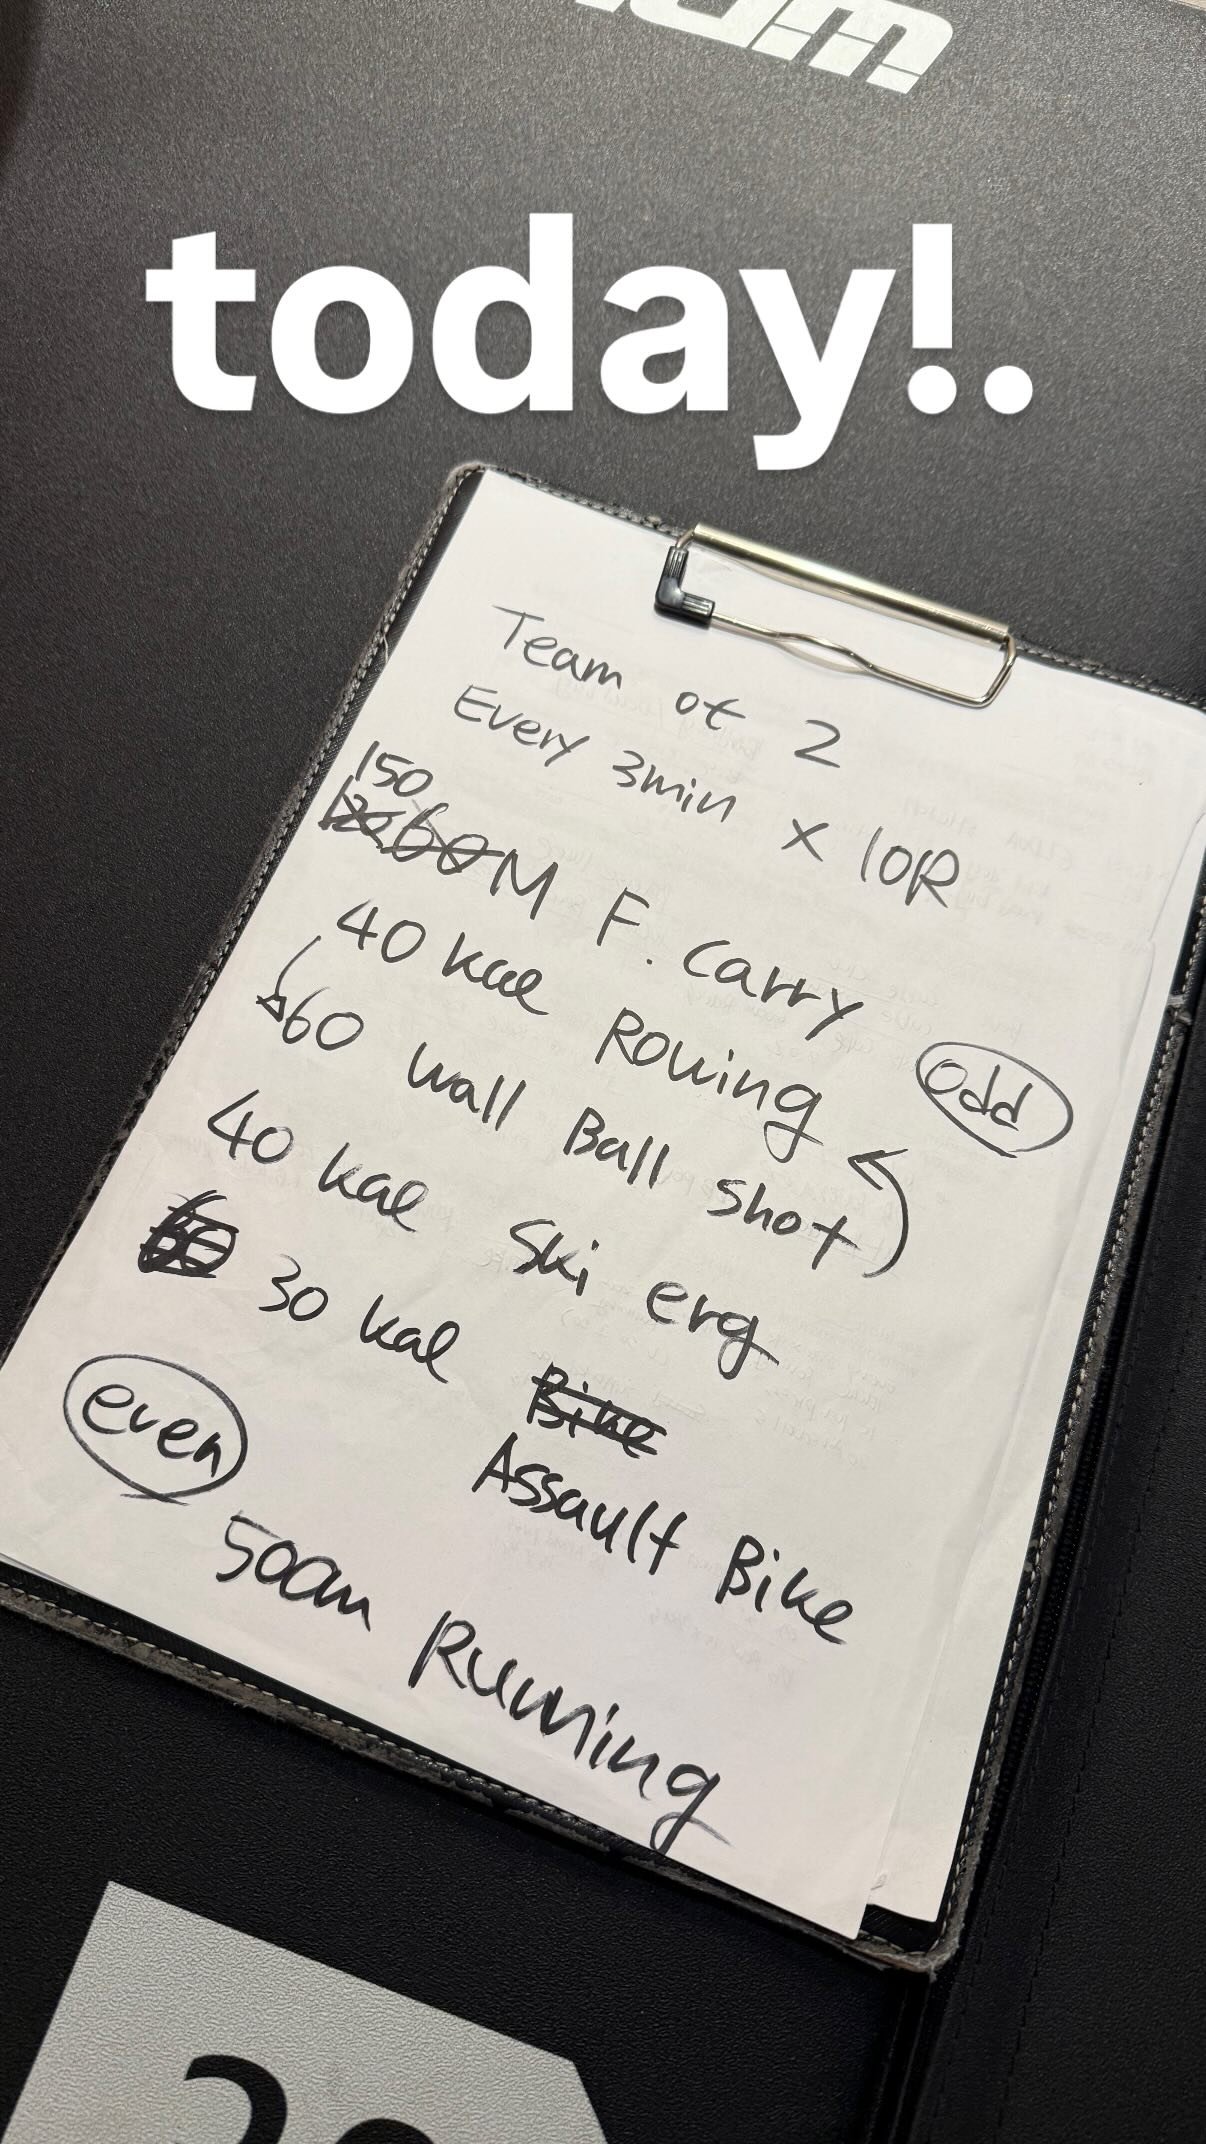 today!.
Team of 2
Every 3min x 10R
150
120 60M F. Carry
40 kcal Rowing
odd
60 Wall Ball Shot
40 kcal Ski erg
60 30 kcal Bike
Assault Bike
even
500m Running